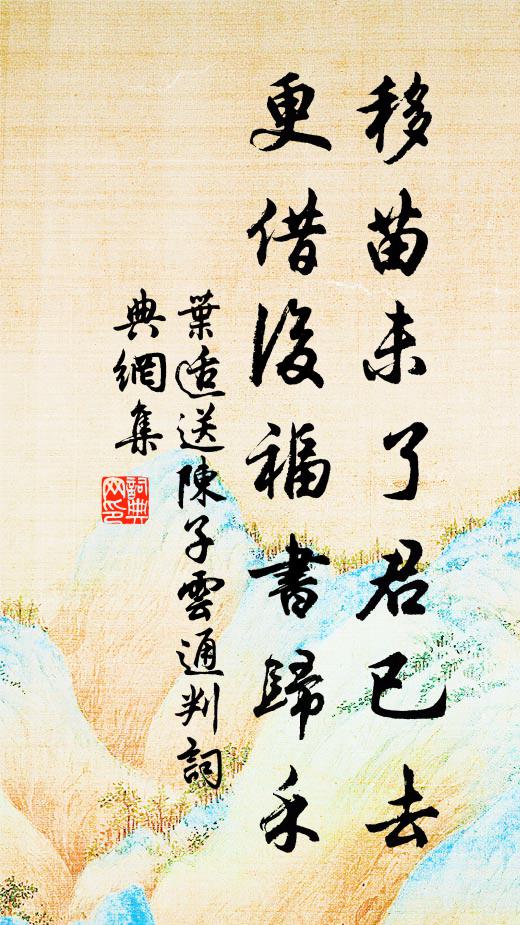 移苗未了君已去
更借後福書歸禾
葉適送陳子雲通判詞
典網集
詞典
网印